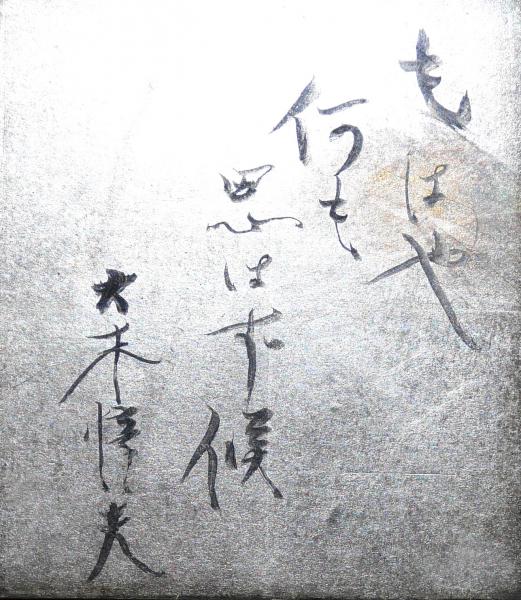 もはや
何も
思はず候
大木惇夫